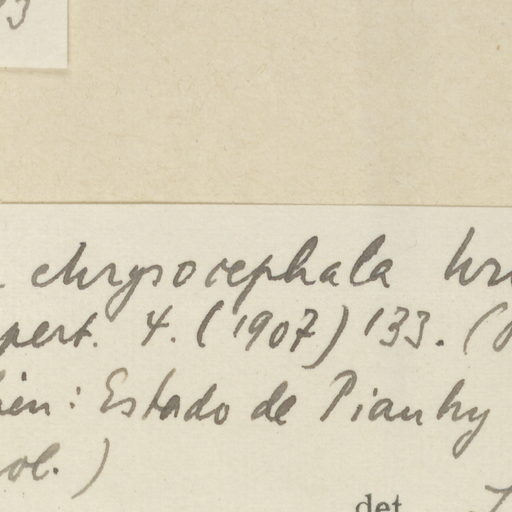 3
chrysocephala
pert. 4. (1907) 133. (
ien: Estado de Piauhy
ol.)
det.